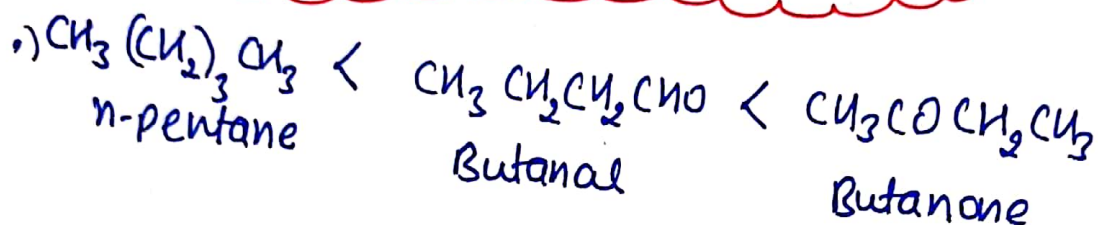 •) CH₃(CH₂)₃CH₃ < CH₃CH₂CH₂CHO < CH₃COCH₂CH₃
n-pentane Butanal Butanone